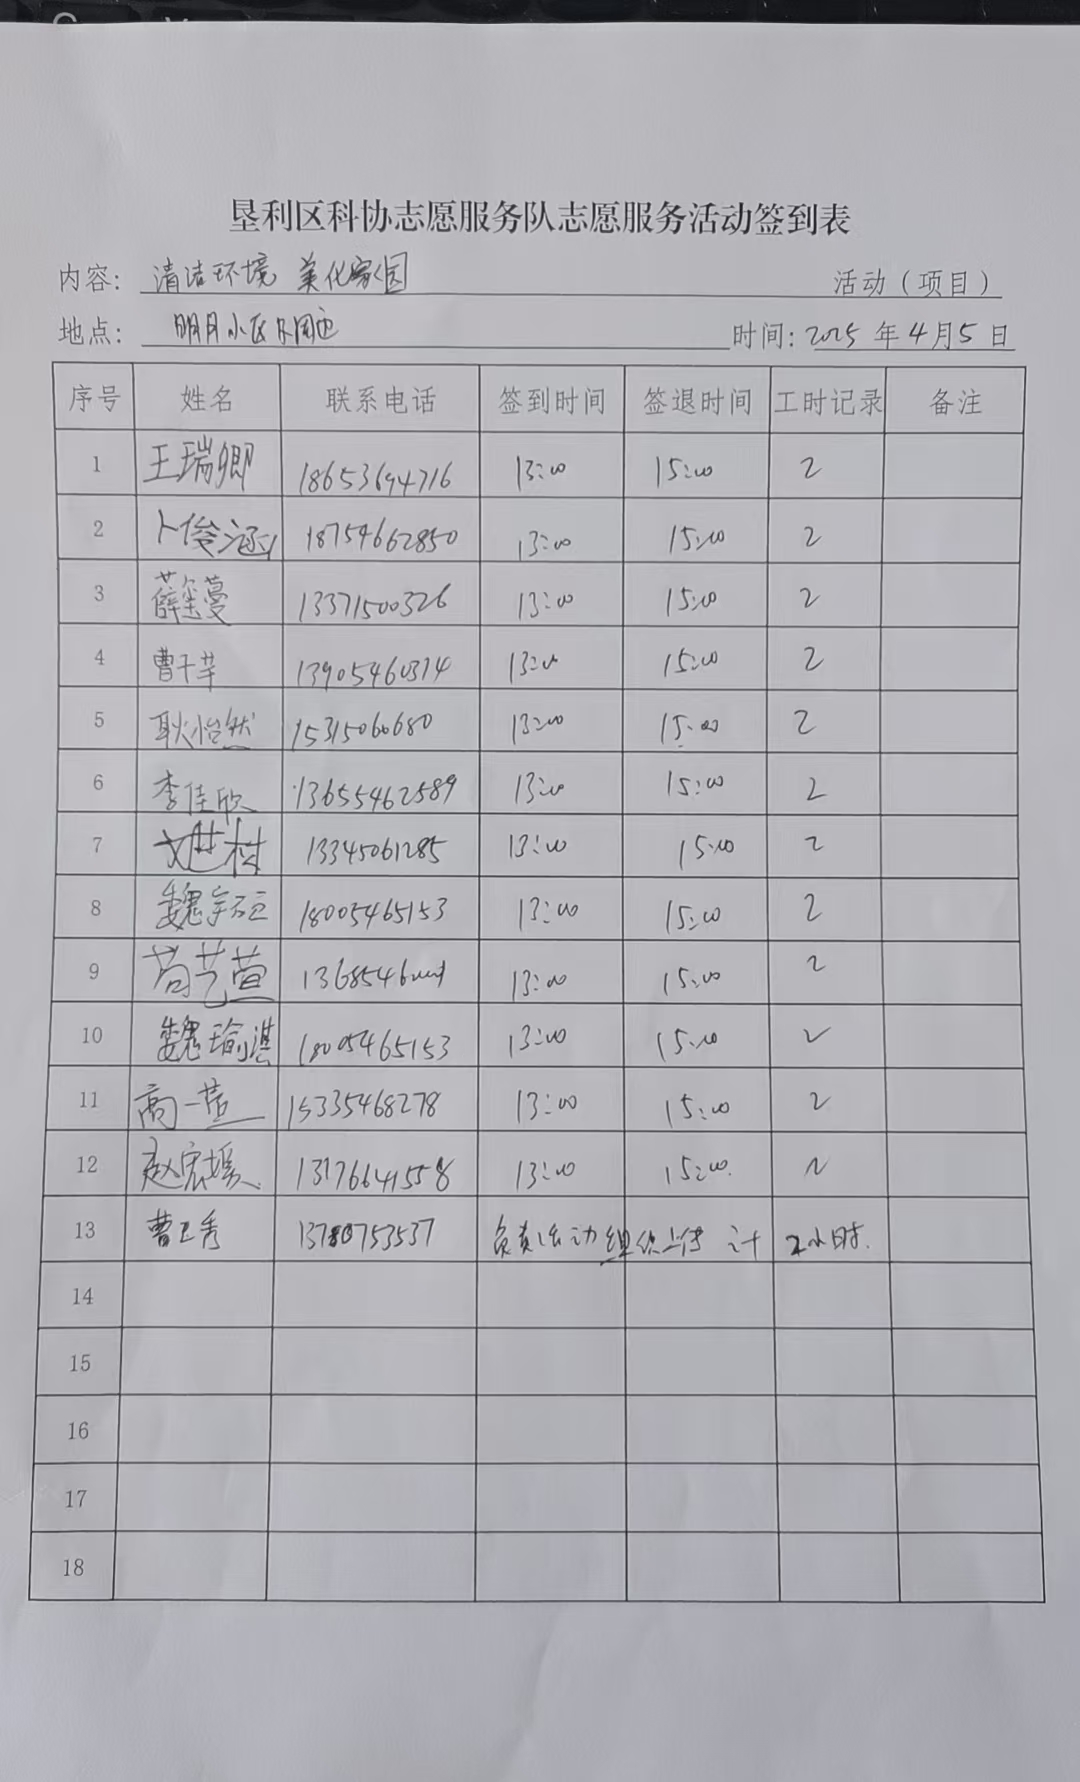 垦利区科协志愿服务队志愿服务活动签到表
内容: 清洁环境 美化家园 活动（项目）
地点: 明月小区及周边 时间: 2025 年 4 月 5 日
序号 姓名 联系电话 签到时间 签退时间 工时记录 备注
1 王瑞卿 18653694716 13:00 15:00 2
2 卜俊涵 18754662850 13:00 15:00 2
3 薛玺蔓 13371500326 13:00 15:00 2
4 曹千芊 13905460314 13:00 15:00 2
5 耿怡然 15315060680 13:00 15:00 2
6 李佳欣 13655462589 13:00 15:00 2
7 13345061285 13:00 15:00 2
8 魏 18005465153 13:00 15:00 2
9 苟艺萱 13:00 15:00 2
10 魏瑜淇 18005465153 13:00 15:00 2
11 高一萱 15335468278 13:00 15:00 2
12 赵宏媛 13176641558 13:00 15:00 2
13 曹卫秀 13780753537 负责活动组织上传 计 2小时.
14
15
16
17
18